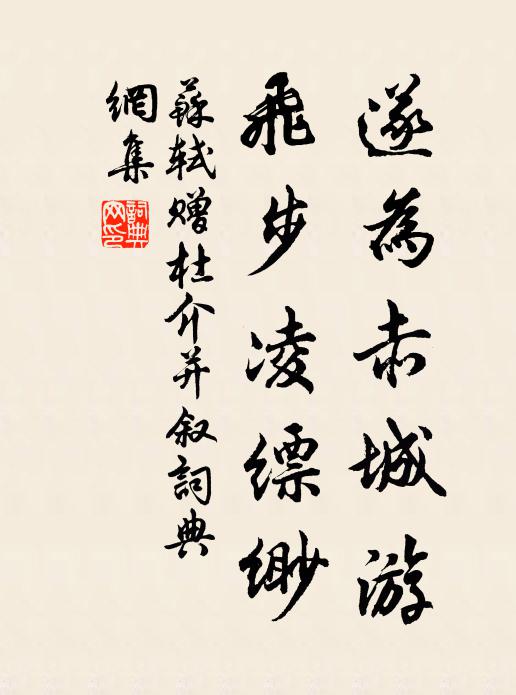 遂為赤城游
飛步凌縹緲
蘇軾贈杜介并敘詞典
網集
詞典網印